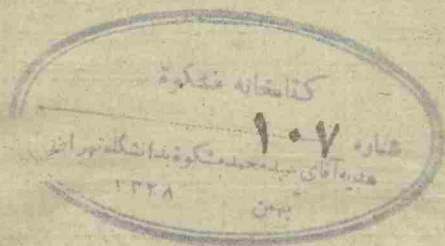 کتابخانه مشکوة
شماره ۱۰۷
هدیه آقای سید محمد مشکوة بدانشگاه تهران
۱۳۲۸
بهمن